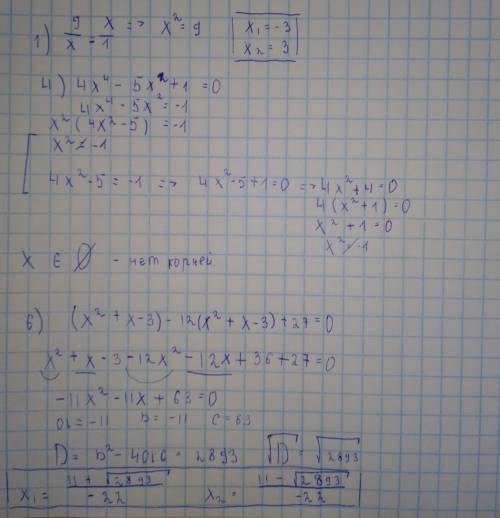 1) 9/x = x/1 => x² = 9   x₁ = -3
x₂ = 3
4) 4x⁴ - 5x² + 1 = 0
4x⁴ - 5x² = -1
x² (4x² - 5) = -1
x² ≠ -1
4x² - 5 = -1 => 4x² - 5 + 1 = 0 => 4x² + 4 = 0
4 (x² + 1) = 0
x² + 1 = 0
x² ≠ -1
X ∈ ∅ - нет корней
6) (x² + x - 3) - 12(x² + x - 3) + 27 = 0
x² + x - 3 - 12x² - 12x + 36 + 27 = 0
-11x² - 11x + 63 = 0
a = -11 b = -11 c = 63
D = b² - 4ac = 2893 √D = √2893
x₁ = (11 + √2893)/-22 x₂ = (11 - √2893)/-22